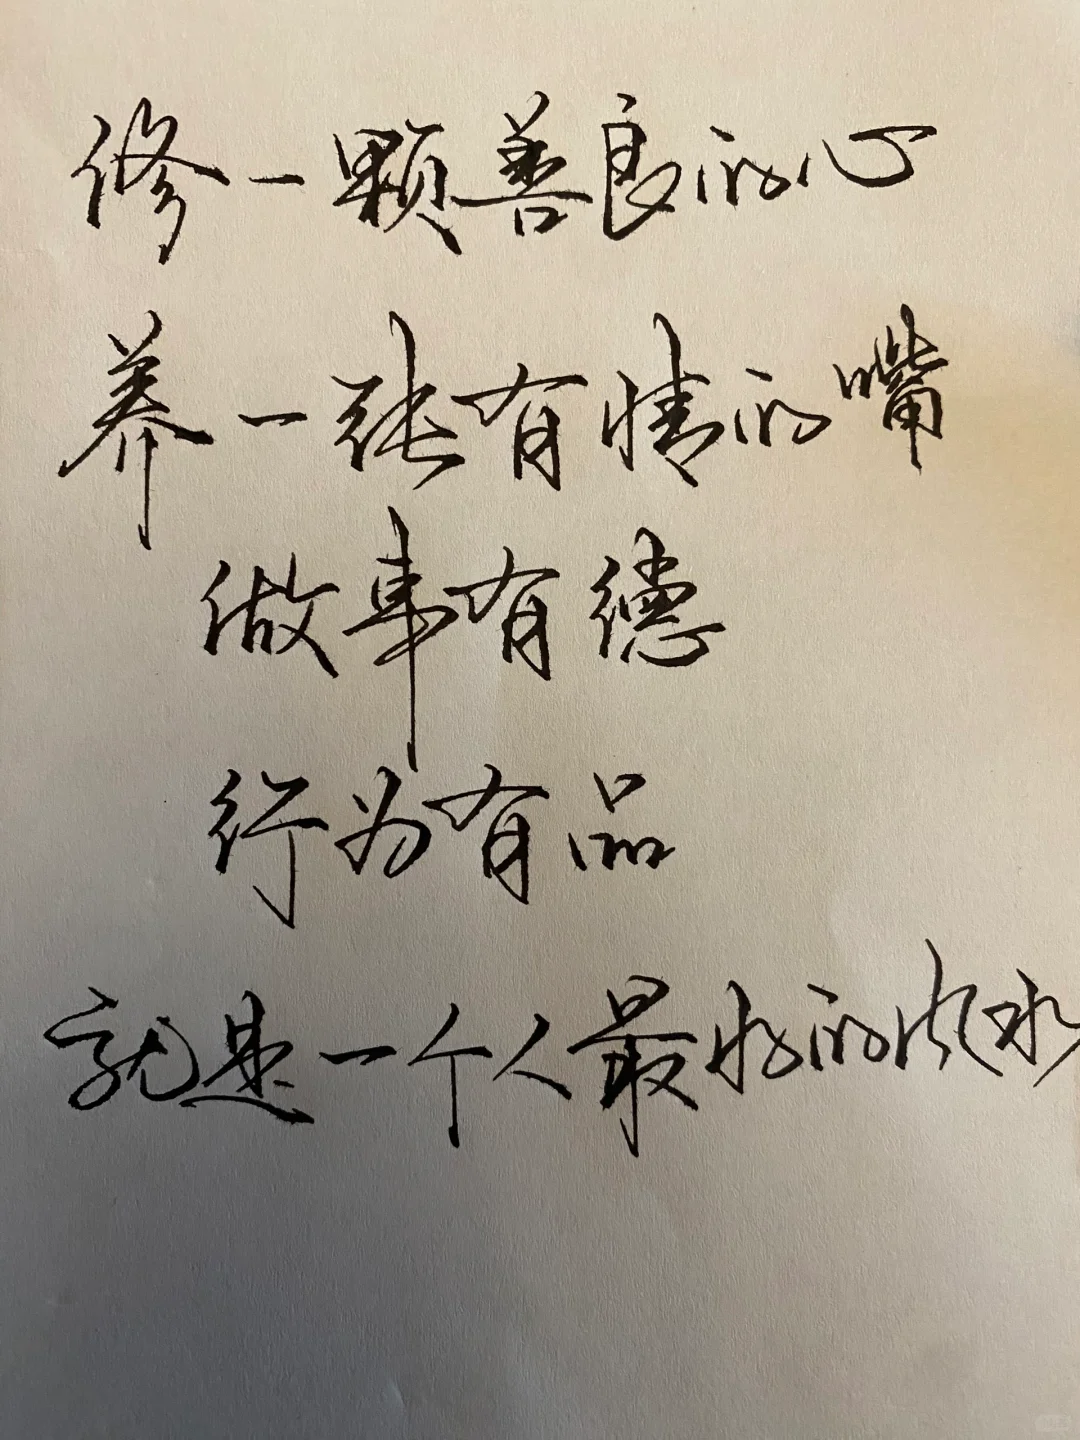 修一颗善良的心
养一张有情的嘴
做事有德
行为有品
就是一个人最好的风水